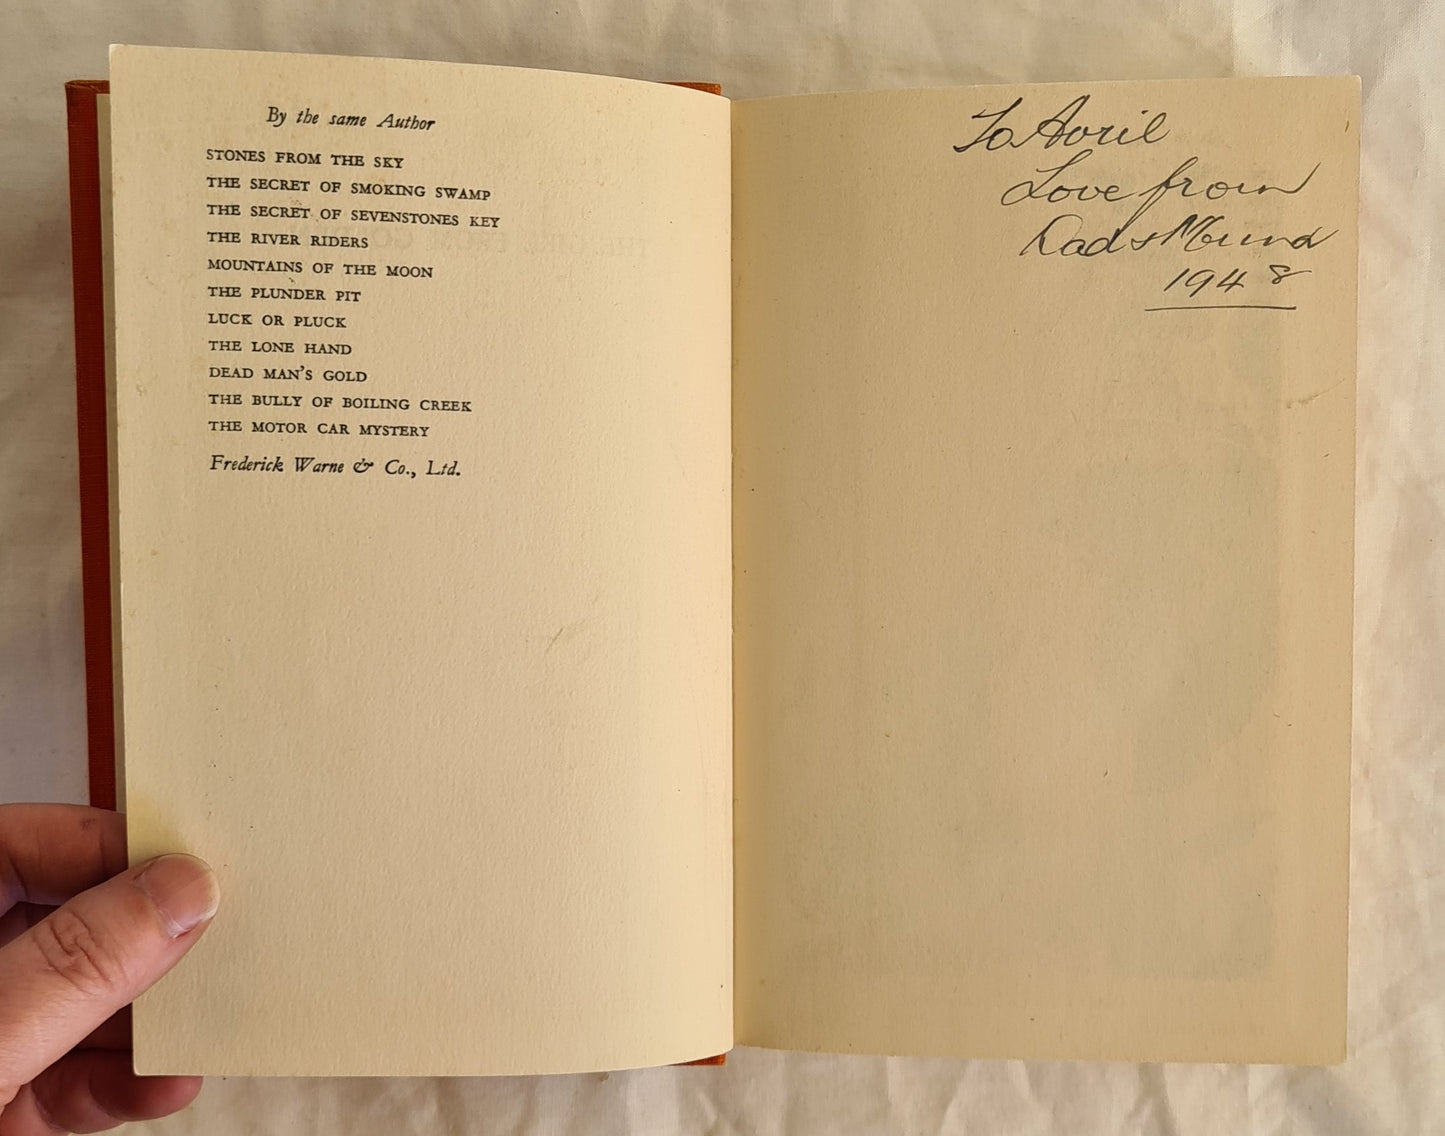 By the same Author
STONES FROM THE SKY
THE SECRET OF SMOKING SWAMP
THE SECRET OF SEVENSTONES KEY
THE RIVER RIDERS
MOUNTAINS OF THE MOON
THE PLUNDER PIT
LUCK OR PLUCK
THE LONE HAND
DEAD MAN'S GOLD
THE BULLY OF BOILING CREEK
THE MOTOR CAR MYSTERY
Frederick Warne & Co., Ltd.
To Avril
Love from
Dad & Mum
1948